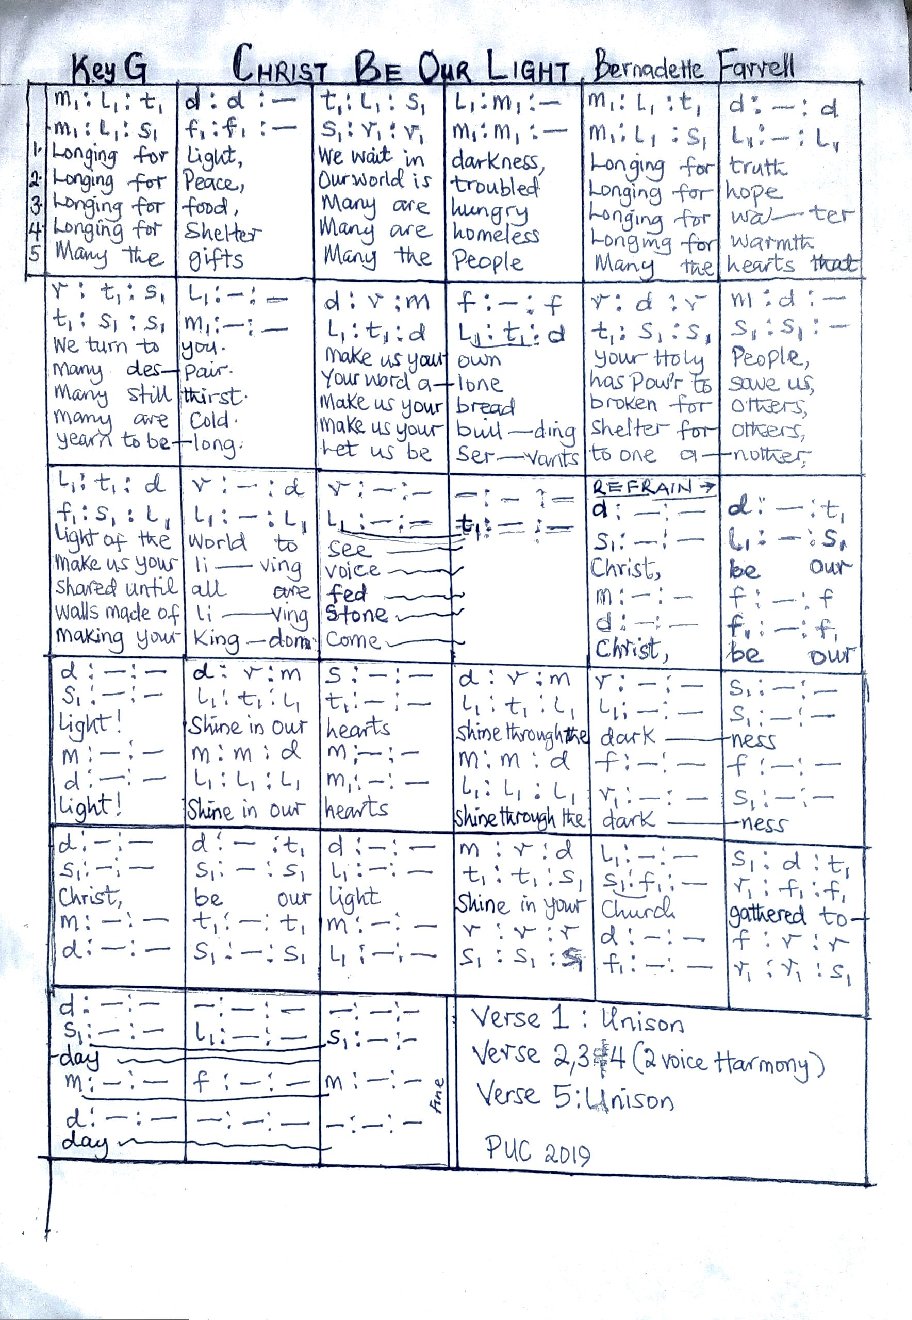 Key G CHRIST BE OUR LIGHT Bernadette Farrell
m₁ : L₁ : t₁ | d : d : — | t₁ : L₁ : s₁ | L₁ : m₁ : — | m₁ : L₁ : t₁ | d : — : d
m₁ : L₁ : s₁ | f₁ : f₁ : — | s₁ : r₁ : r₁ | m₁ : m₁ : — | m₁ : L₁ : s₁ | L₁ : — : L₁
1. Longing for | Light, | We wait in | darkness, | Longing for | truth
2. Longing for | Peace, | Our world is | troubled | Longing for | hope
3 Longing for | food, | Many are | hungry | Longing for | wa—ter
4. Longing for | Shelter | Many are | homeless | Longing for | Warmth
5 Many the | gifts | Many the | People | Many the | hearts that
r : t₁ : s₁ | L₁ : — : — | d : r : m | f : — : f | r : d : r | m : d : —
t₁ : s₁ : s₁ | m₁ : — : — | L₁ : t₁ : d | L₁ : t₁ : d | t₁ : s₁ : s₁ | s₁ : s₁ : —
We turn to | you. | make us your | own | your Holy | People,
many des— | Pair. | Your word a— | lone | has Pow'r to | save us,
Many still | thirst. | Make us your | bread | broken for | others,
many are | Cold. | make us your | buil—ding | shelter for | others,
yearn to be— | long. | Let us be | Ser—vants | to one a— | nother,
REFRAIN →
L₁ : t₁ : d | r : — : d | r : — : — | — : — : — | d : — : — | d : — : t₁
f₁ : s₁ : L₁ | L₁ : — : L₁ | L₁ : — : — | t₁ : — : — | s₁ : — : — | L₁ : — : s₁
Light of the | World to | see | | Christ, | be our
make us your | li—ving | voice
shared until | all are | fed | | m : — : — | f : — : f
walls made of | li—ving | Stone | | d : — : — | f₁ : — : f₁
making your | King—dom | Come | | Christ, | be our
d : — : — | d : r : m | s : — : — | d : r : m | r : — : — | s₁ : — : —
s₁ : — : — | L₁ : t₁ : L₁ | t₁ : — : — | L₁ : t₁ : L₁ | L₁ : — : — | s₁ : — : —
Light! | Shine in our | hearts | shine through the | dark— | —ness
m : — : — | m : m : d | m : — : — | m : m : d | f : — : — | f : — : —
d : — : — | L₁ : L₁ : L₁ | m₁ : — : — | L₁ : L₁ : L₁ | r₁ : — : — | s₁ : — : —
Light! | Shine in our | hearts | Shine through the | dark— | —ness
d : — : — | d : — : t₁ | d : — : — | m : r : d | L₁ : — : — | s₁ : d : t₁
s₁ : — : — | s₁ : — : s₁ | L₁ : — : — | t₁ : t₁ : s₁ | s₁ : f₁ : — | r₁ : f₁ : f₁
Christ, | be our | light | Shine in your | Church | gathered to—
m : — : — | t₁ : — : t₁ | m : — : — | r : r : r | d : — : — | f : r : r
d : — : — | s₁ : — : s₁ | L₁ : — : — | s₁ : s₁ : s₁ | f₁ : — : — | r₁ : r₁ : s₁
d : — : — | — : — : — | — : — : —
s₁ : — : — | L₁ : — : — | s₁ : — : —
-day
m : — : — | f : — : — | m : — : —
d : — : — | — : — : — | — : — : —
day
Fine
Verse 1 : Unison
Verse 2,3 & 4 (2 voice Harmony)
Verse 5 : Unison
PUC 2019